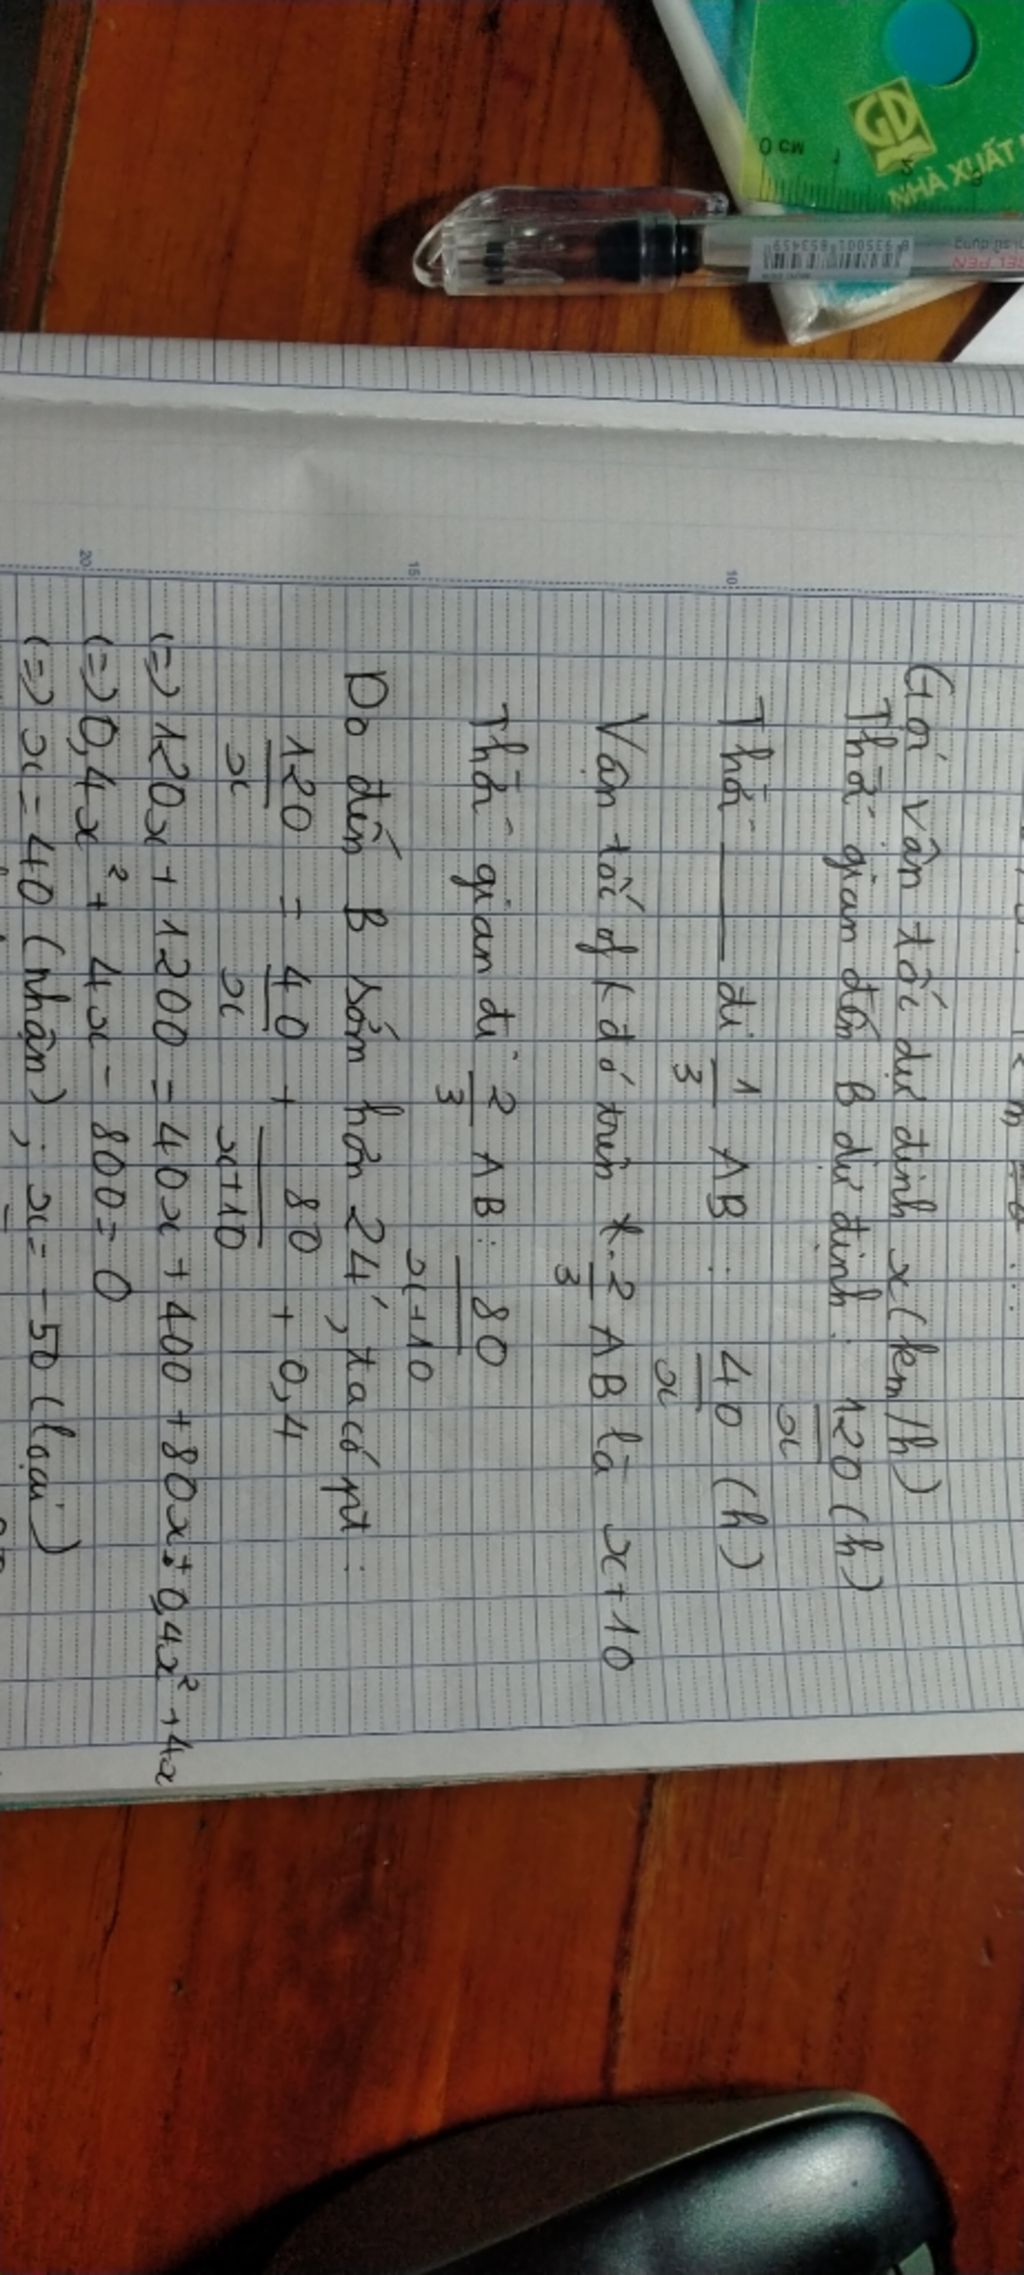 GD
NHÀ XUẤT
0 CM 1
8 935001 853459
GEL PEN
10
15
20
Gọi vân tốc dự định x (km/h)
Thời gian đến B dự định: 120/x (h)
Thời ——— đi 1/3 AB: 40/x (h)
Vận tốc 2/3 AB là x+10
Thời gian đi 2/3 AB: 80/x+10
Do đến B sớm hơn 24', ta có pt:
120/x = 40/x + 80/x+10 + 0,4
(=) 120x + 1200 = 40x + 400 + 80x + 0,4x² + 4x
(=) 0,4x² + 4x - 800 = 0
(=) x = 40 (nhận); x = -50 (loại)